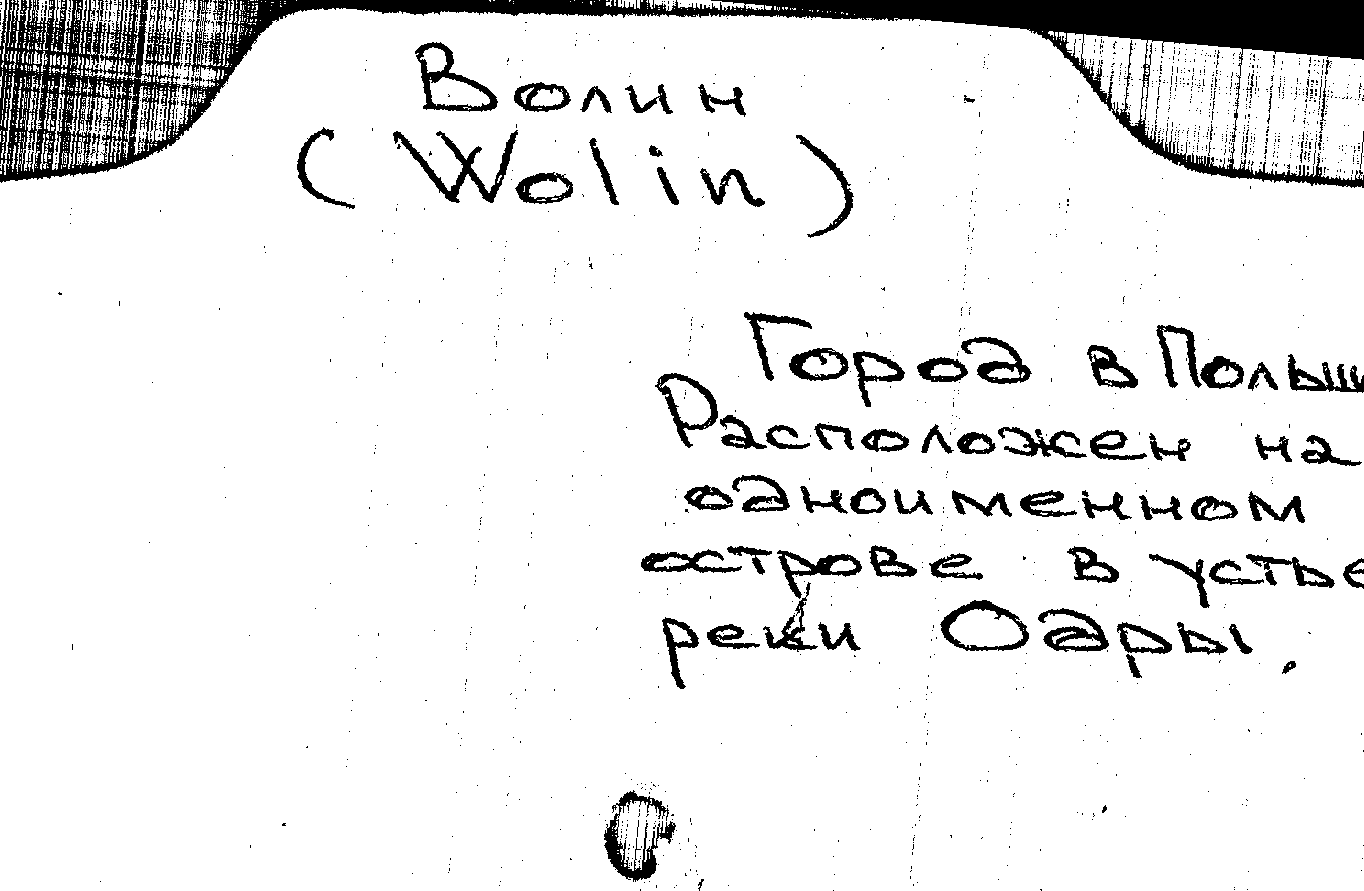 Волин
(Wolin)
Город в Польш
Расположен на
одноименном
острове в устье
реки Одры.